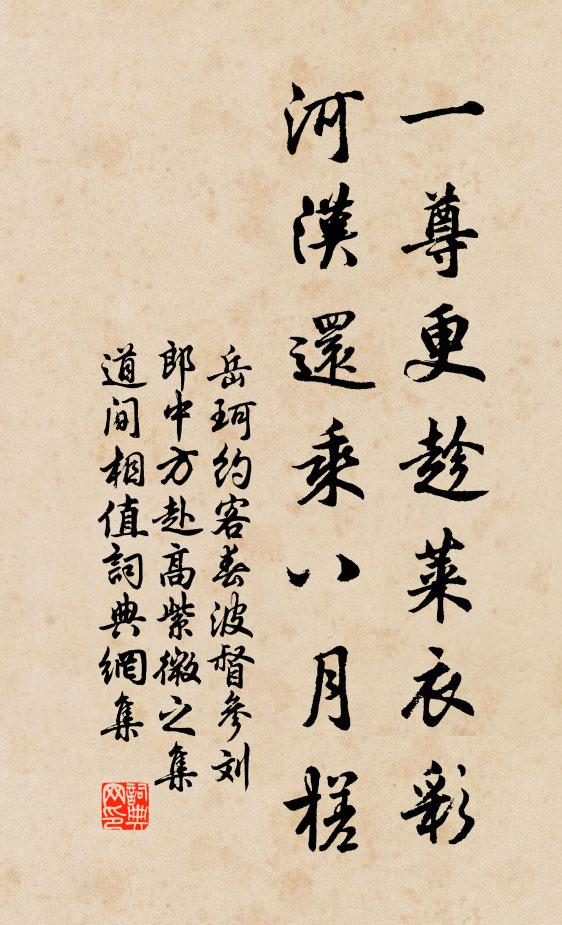 一尊更趁萊衣彩
河漢還乘八月槎
岳珂約客春波督參刘
郎中方赴高紫微之集
道间相值詞典網集
詞典
网印